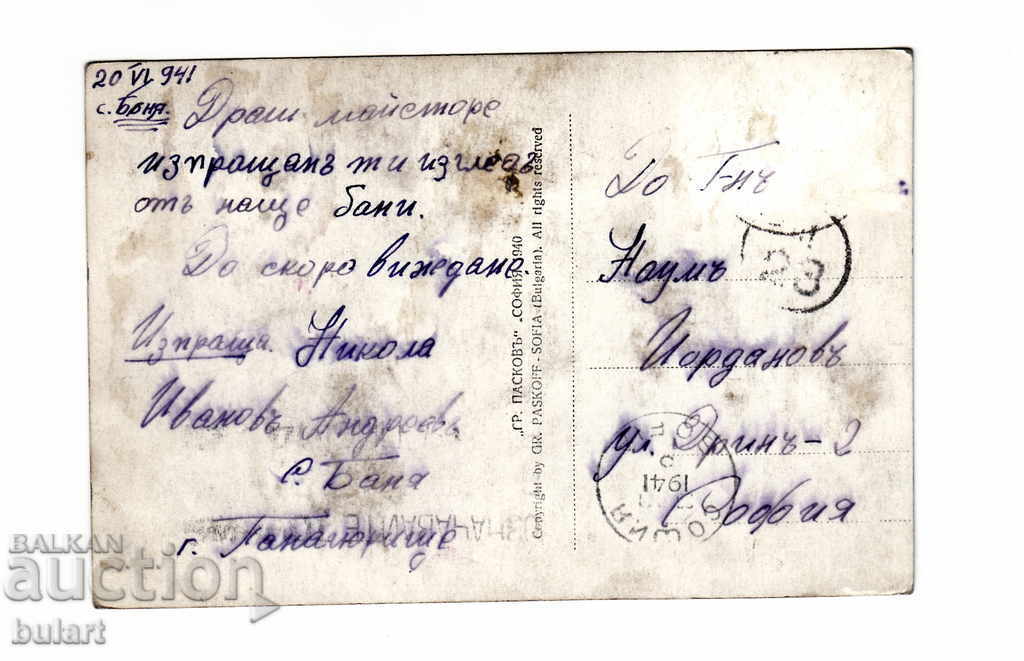 20 VI 941
с. Баня.
Драги майсторе
изпращанъ ти изгледъ
отъ наще бани.
До скоро виждане.
Изпраща. Никола
Ивановъ Андреевъ
с. Баня
г. Панагюрище
„ГР. ПАСКОВЪ“ „СОФИЯ“ 1940
Copyright by GR. PASKOFF - SOFIA (Bulgaria). All rights reserved
До Г-нъ
Наумъ
Иордановъ
ул. Дринъ - 2
София
23
1941
BALKAN
auction
bulart